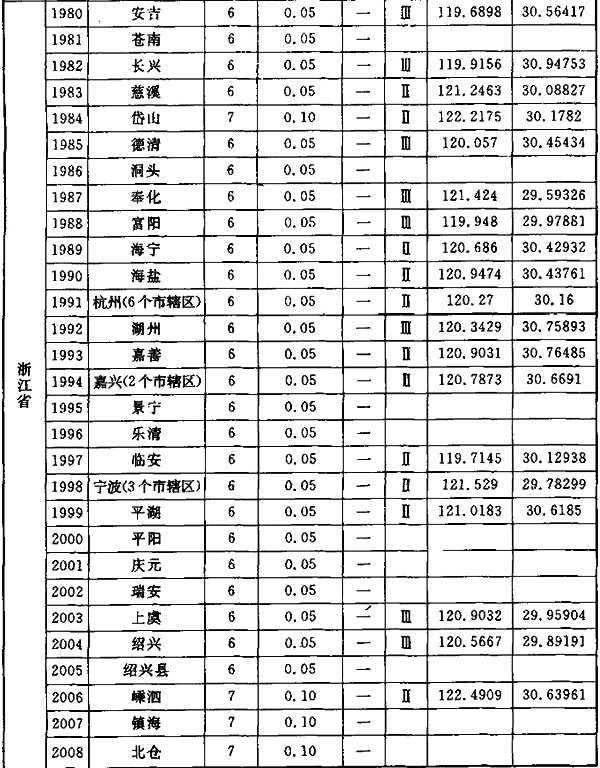 浙江省
1980 安吉 6 0.05 一 Ⅲ 119.6898 30.56417
1981 苍南 6 0.05 一
1982 长兴 6 0.05 一 Ⅲ 119.9156 30.94753
1983 慈溪 6 0.05 一 Ⅱ 121.2463 30.08827
1984 岱山 7 0.10 一 Ⅱ 122.2175 30.1782
1985 德清 6 0.05 一 Ⅲ 120.057 30.45434
1986 洞头 6 0.05 一
1987 奉化 6 0.05 一 Ⅲ 121.424 29.59326
1988 富阳 6 0.05 一 Ⅲ 119.948 29.97881
1989 海宁 6 0.05 一 Ⅱ 120.686 30.42932
1990 海盐 6 0.05 一 Ⅱ 120.9474 30.43761
1991 杭州(6个市辖区) 6 0.05 一 Ⅱ 120.27 30.16
1992 湖州 6 0.05 一 Ⅲ 120.3429 30.75893
1993 嘉善 6 0.05 一 Ⅱ 120.9031 30.76485
1994 嘉兴(2个市辖区) 6 0.05 一 Ⅱ 120.7873 30.6691
1995 景宁 6 0.05 一
1996 乐清 6 0.05 一
1997 临安 6 0.05 一 Ⅱ 119.7145 30.12938
1998 宁波(3个市辖区) 6 0.05 一 Ⅱ 121.529 29.78299
1999 平湖 6 0.05 一 Ⅱ 121.0183 30.6185
2000 平阳 6 0.05 一
2001 庆元 6 0.05 一
2002 瑞安 6 0.05 一
2003 上虞 6 0.05 一 Ⅲ 120.9032 29.95904
2004 绍兴 6 0.05 一 Ⅲ 120.5667 29.89191
2005 绍兴县 6 0.05 一
2006 嵊泗 7 0.10 一 Ⅱ 122.4909 30.63961
2007 镇海 7 0.10 一
2008 北仓 7 0.10 一